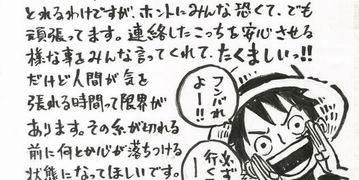 とれるわけですが、ホントにみんな恐くて、でも
頑張ってます。連絡したこっちを安心させる
様な事をみんな言ってくれて、たくましいっ!!
だけど人間が気を
張れる時間って限界が
あります。その糸が切れる
前に何とか心が落ちつける
状態になってほしいです。
フンバれ
よー!!
必ず
行こ